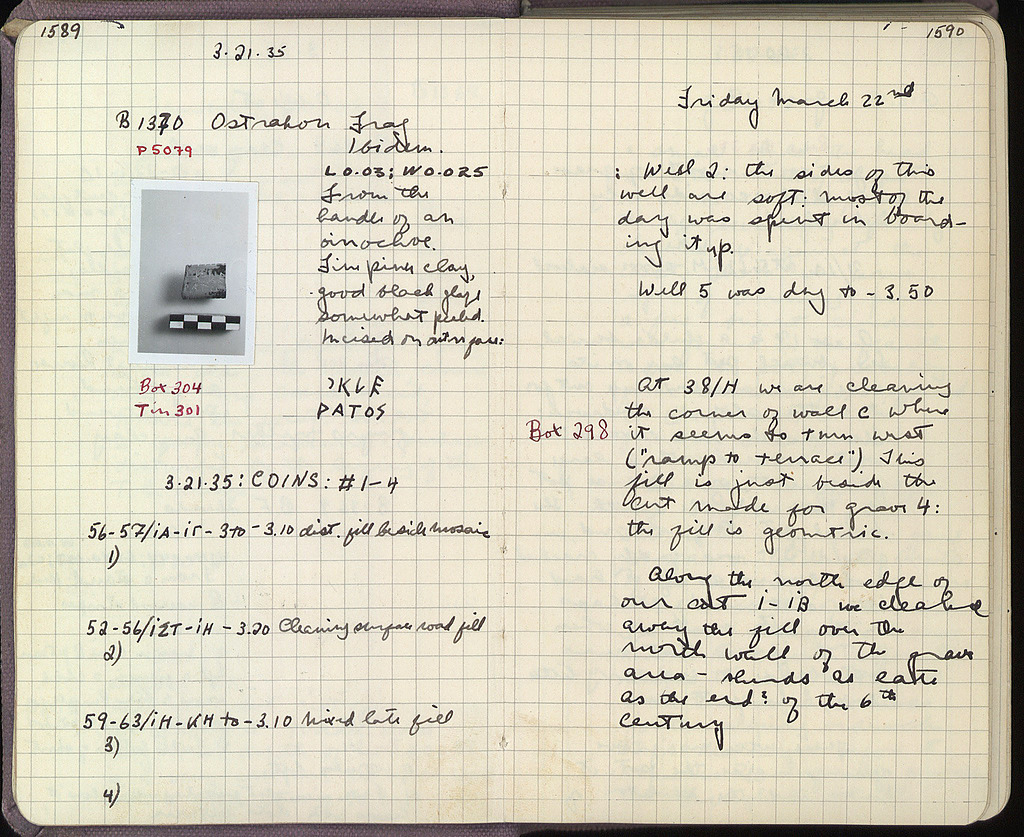 1589
3·21·35
B 1370 Ostrakon Frag
P 5079
Ibidem.
L 0.03; W 0.025
From the
handle of an
oinochoe.
Fine pink clay,
good black glaze
somewhat peeled.
Incised on outer face:
Box 304
Tin 301
ϽKLE
PATOS
3·21·35: COINS: #1-4
56-57/ΙΑ-ΙΓ - 3 to -3.10 dist. fill beside mosaic
1)
52-56/ΙΣΤ-ΙΗ - 3.20 Cleaning surface road fill
2)
59-63/ΙΗ-ΚΗ to -3.10 Mixed late fill
3)
4)
1590
Friday March 22nd
: Well 2: the sides of this
well are soft: most of the
day was spent in board-
ing it up.
Well 5 was dug to - 3.50
At 38/H we are cleaning
the corner of wall C where
Box 298
it seems to turn west
("ramp to terrace") This
fill is just beside the
cut made for grave 4:
the fill is geometric.
Along the north edge of
our cut Ι-ΙΒ we cleaned
away the fill over the
north wall of the grave
area - sherds as late
as the end? of the 6th
century